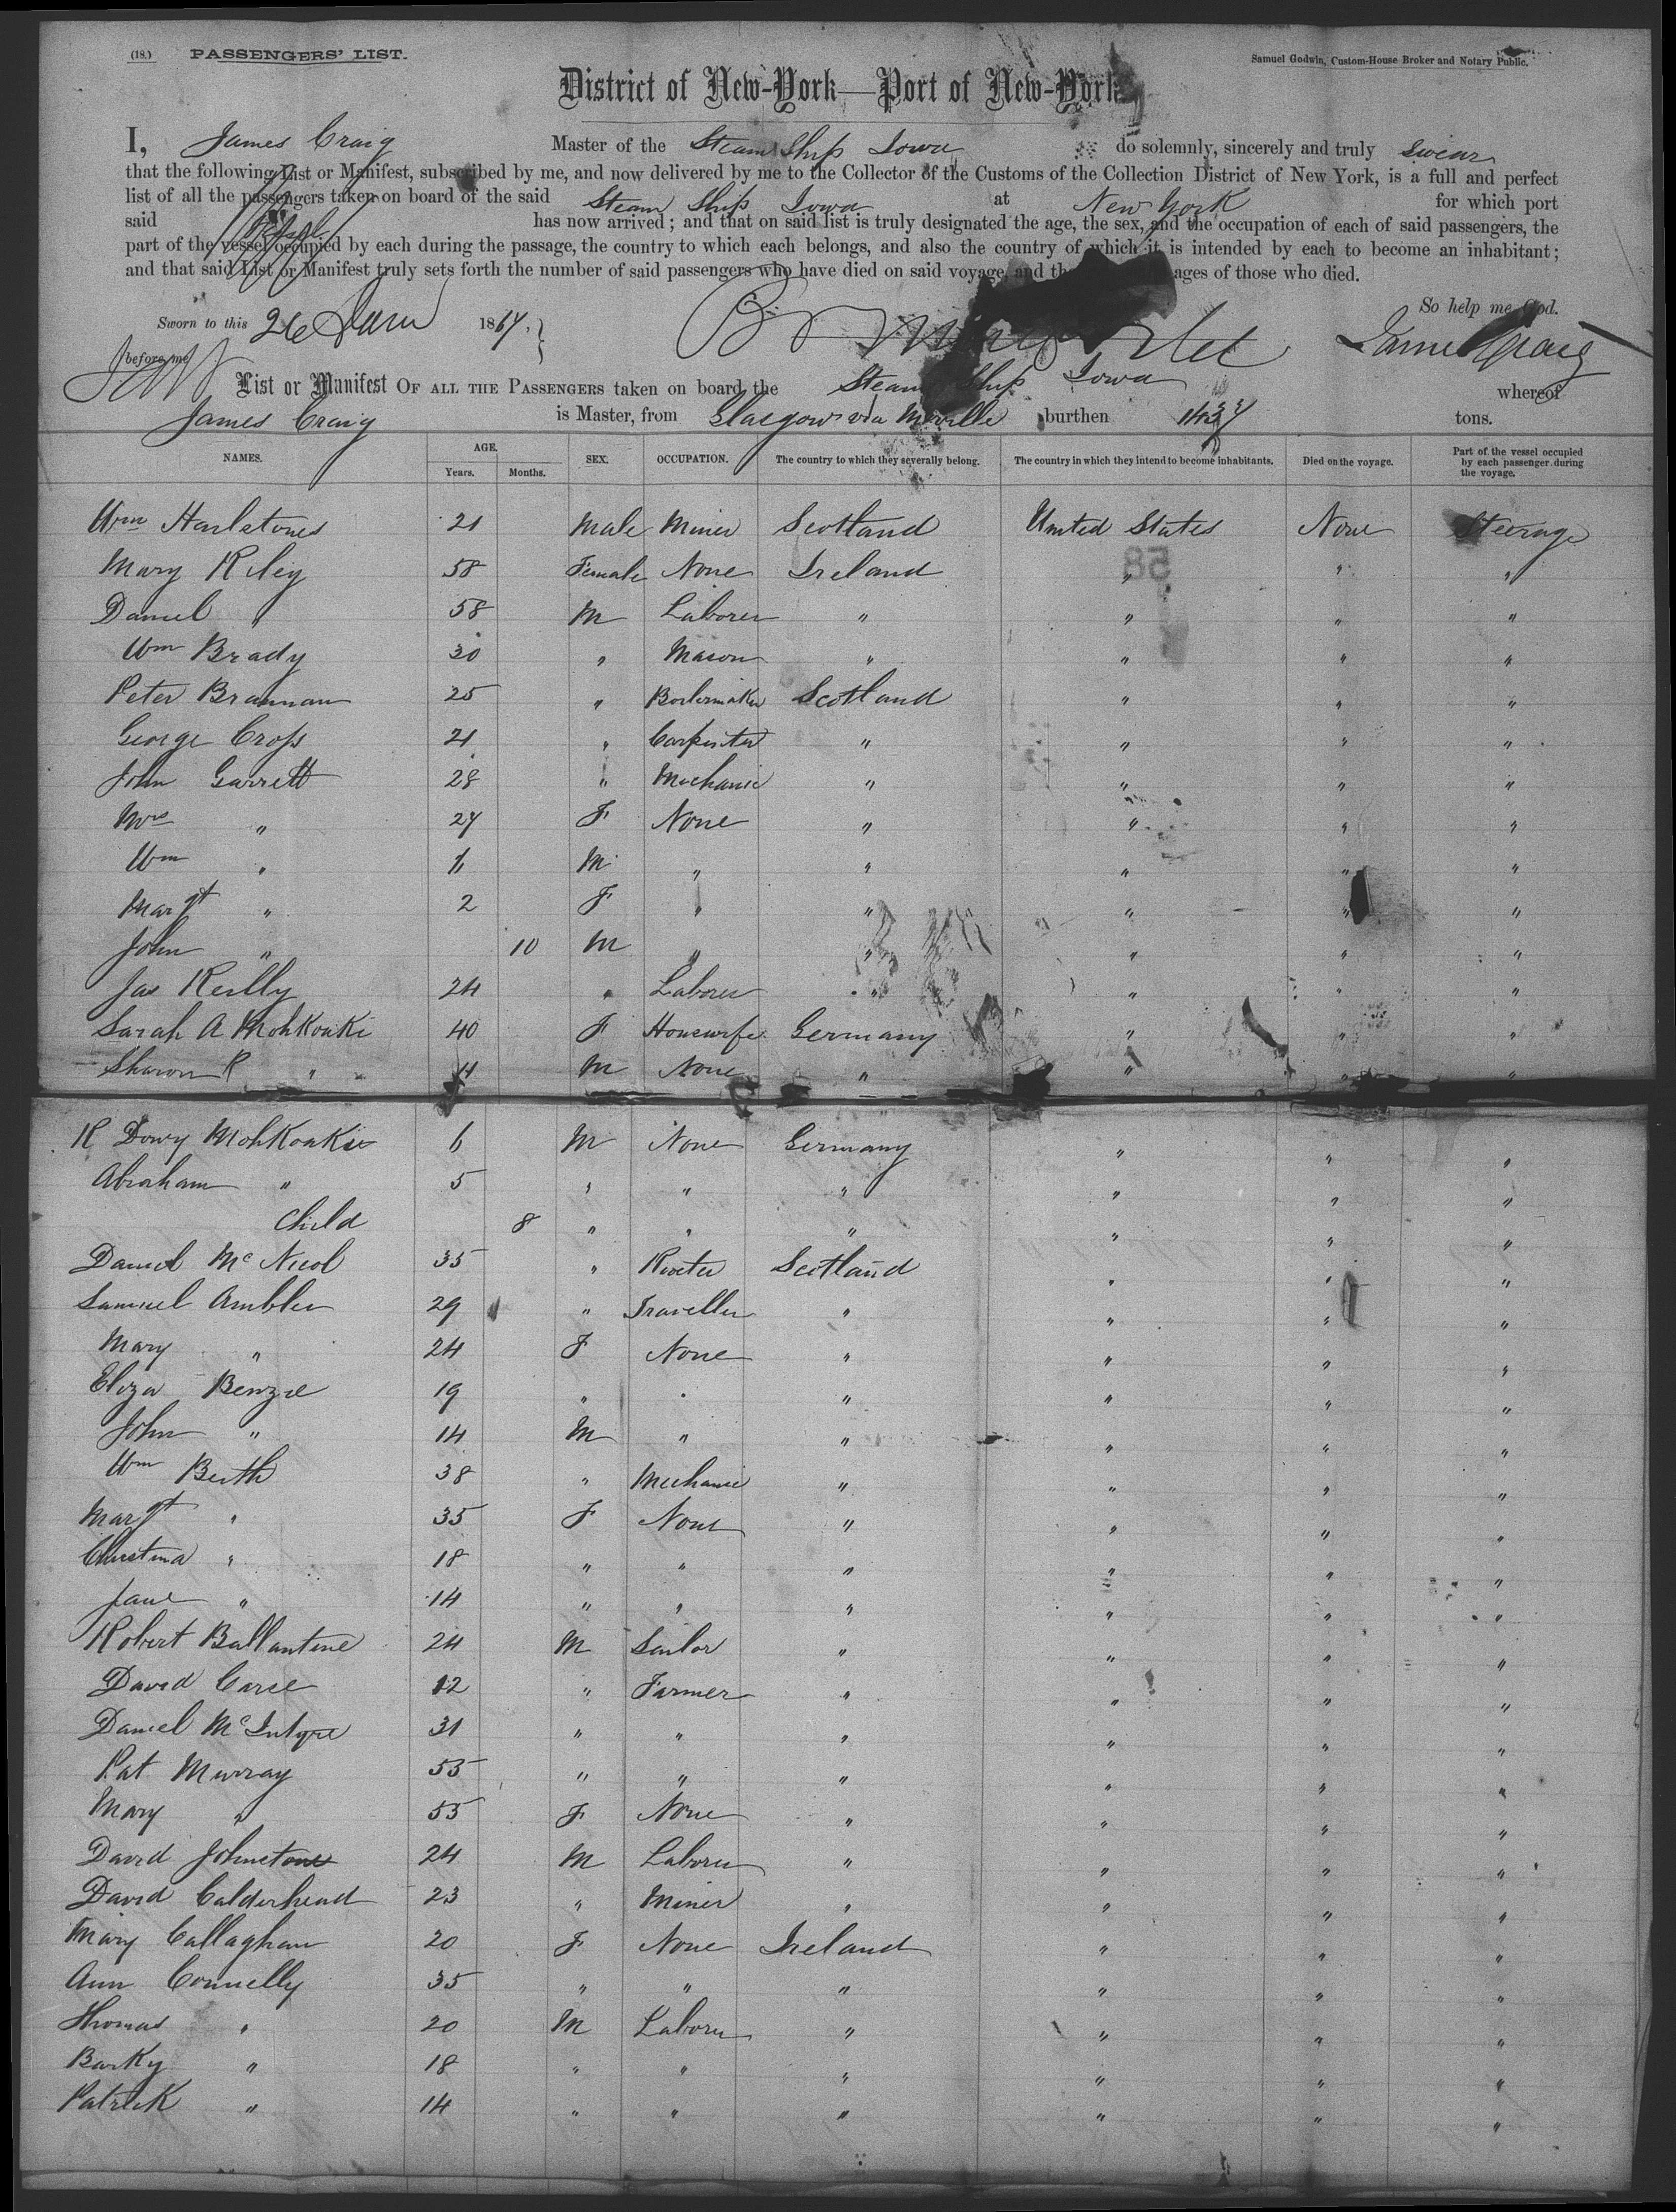 (18.) PASSENGERS' LIST.
Samuel Godwin, Custom-House Broker and Notary Public.
District of New-York—Port of New-York
I, James Craig Master of the Steam Ship Iowa do solemnly, sincerely and truly swear
that the following List or Manifest, subscribed by me, and now delivered by me to the Collector of the Customs of the Collection District of New York, is a full and perfect
list of all the passengers taken on board of the said Steam Ship Iowa at New York for which port
said has now arrived; and that on said list is truly designated the age, the sex, and the occupation of each of said passengers, the
part of the vessel occupied by each during the passage, the country to which each belongs, and also the country of which it is intended by each to become an inhabitant;
and that said List or Manifest truly sets forth the number of said passengers who have died on said voyage, and the ages of those who died.
So help me God.
Sworn to this 26 June 1867,
before me
James Craig
List or Manifest OF ALL THE PASSENGERS taken on board the Steam Ship Iowa whereof
James Craig is Master, from Glasgow via Moville burthen tons.
NAMES. AGE. SEX. OCCUPATION. The country to which they severally belong. The country in which they intend to become inhabitants. Died on the voyage. Part of the vessel occupied by each passenger during the voyage.
Years. Months.
Wm Hailstones 21 Male Miner Scotland United States None Steerage
58
Mary Riley 58 Female None Ireland " " "
Daniel " 58 M Laborer " " " "
Wm Brady 30 " Mason " " " "
Peter Brannan 25 " Boilermaker Scotland " " "
George Cross 21 " Carpenter " " " "
John Garrett 28 " Mechanic " " " "
Mrs " 27 F None " " " "
Wm " M " " " " "
Margt " 2 F " " " " "
John " 10 M " " " " "
Jas Reilly 24 " Laborer " " " "
Sarah A Mohkoaki 40 F Housewife Germany " " "
Sharon R " 11 M None " " " "
R Dowy Mohkoakie 6 M None Germany " " "
Abraham " 5 " " " " " "
Child 8 " " " " " "
Daniel McNicol 35 " Riveter Scotland " " "
Samuel Ambler 29 " Traveller " " " "
Mary " 24 F None " " " "
Eliza Benzie 19 " " " " " "
John " 14 M " " " " "
Wm Beith 38 " Mechanic " " " "
Margt " 35 F None " " " "
Christina " 18 " " " " " "
Jane " 14 " " " " " "
Robert Ballantine 24 M Sailor " " " "
David Carse 12 " Farmer " " " "
Daniel McIntyre 31 " " " " " "
Pat Murray 55 " " " " " "
Mary " 55 F None " " " "
David Johnstone 24 M Laborer " " " "
David Calderhead 23 " Miner " " " "
Mary Callaghan 20 F None Ireland " " "
Ann Connelly 35 " " " " " "
Thomas " 20 M Laborer " " " "
Barky " 18 " " " " " "
Patrick " 14 " " " " " "